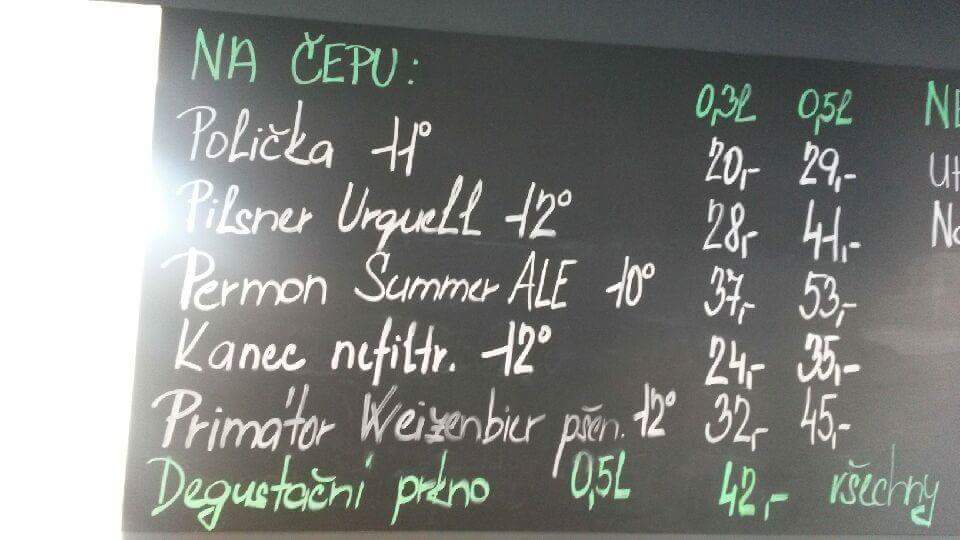 NA ČEPU: 0,3l 0,5l NE
Polička 11° 20,- 29,- Ut
Pilsner Urquell 12° 28,- 41,- No
Permon Summer ALE 10° 37,- 53,-
Kanec nefiltr. 12° 24,- 35,-
Primátor Weizenbier pšen. 12° 32,- 45,-
Degustační prkno 0,5L 42,- všechny